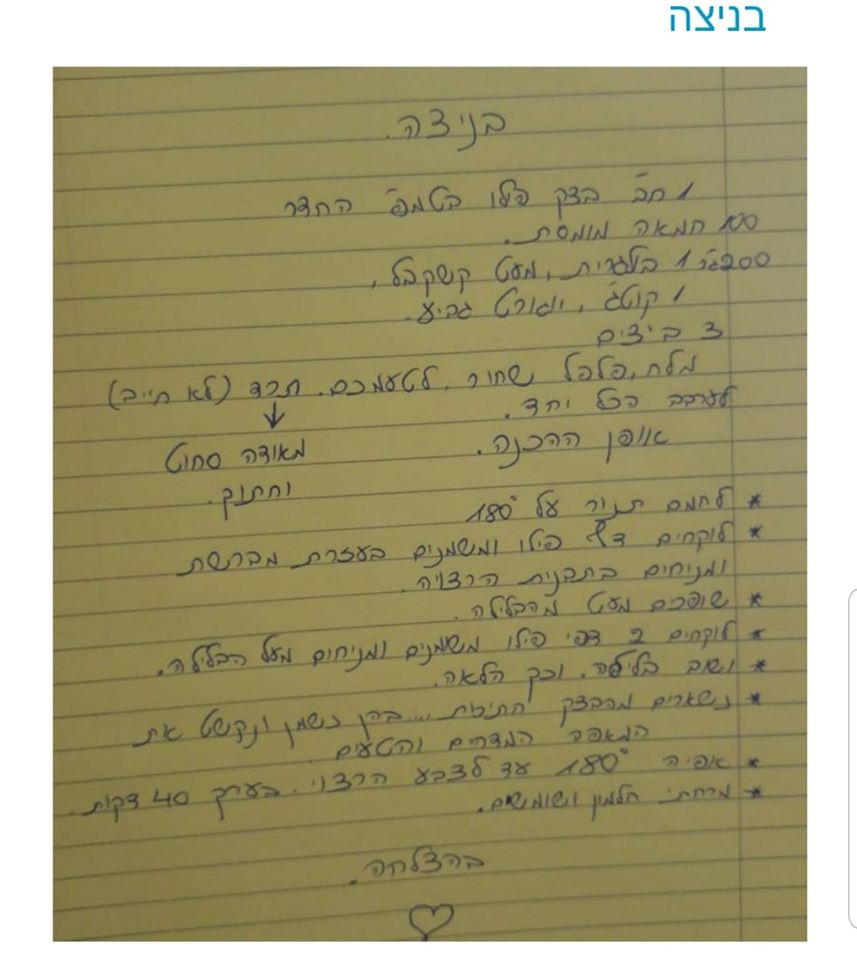 בניצה
בניצה.
1 חב' בצק פילו בטמפ' החדר
100 חמאה מומסת.
200 גר' 1 בולגרית, מעט קשקבל,
1 קוטג', יוגורט גביע.
3 ביצים
מלח, פלפל שחור, לטעמכם. תרד (לא חייב)
↓
לערבב הכל יחד.
מאודה סחוט
וחתוך.
אופן ההכנה.
* לחמם תנור על 180°
* לוקחים דף פילו ומשמנים בעזרת מברשת
ומניחים בתבנית הרצויה.
* שופכים מעט מהבלילה.
* לוקחים 2 דפי פילו משמנים ומניחים מעל הבלילה.
* ושוב בלילה. וכך הלאה.
* נשארים מהבצק חתיכות ... בהן נשמן ונקשט את
המאפה המדהים והטעים.
* אפיה 180° עד לצבע הרצוי. בערך 40 דקות.
* מרחתי חלמון ושומשום.
בהצלחה.